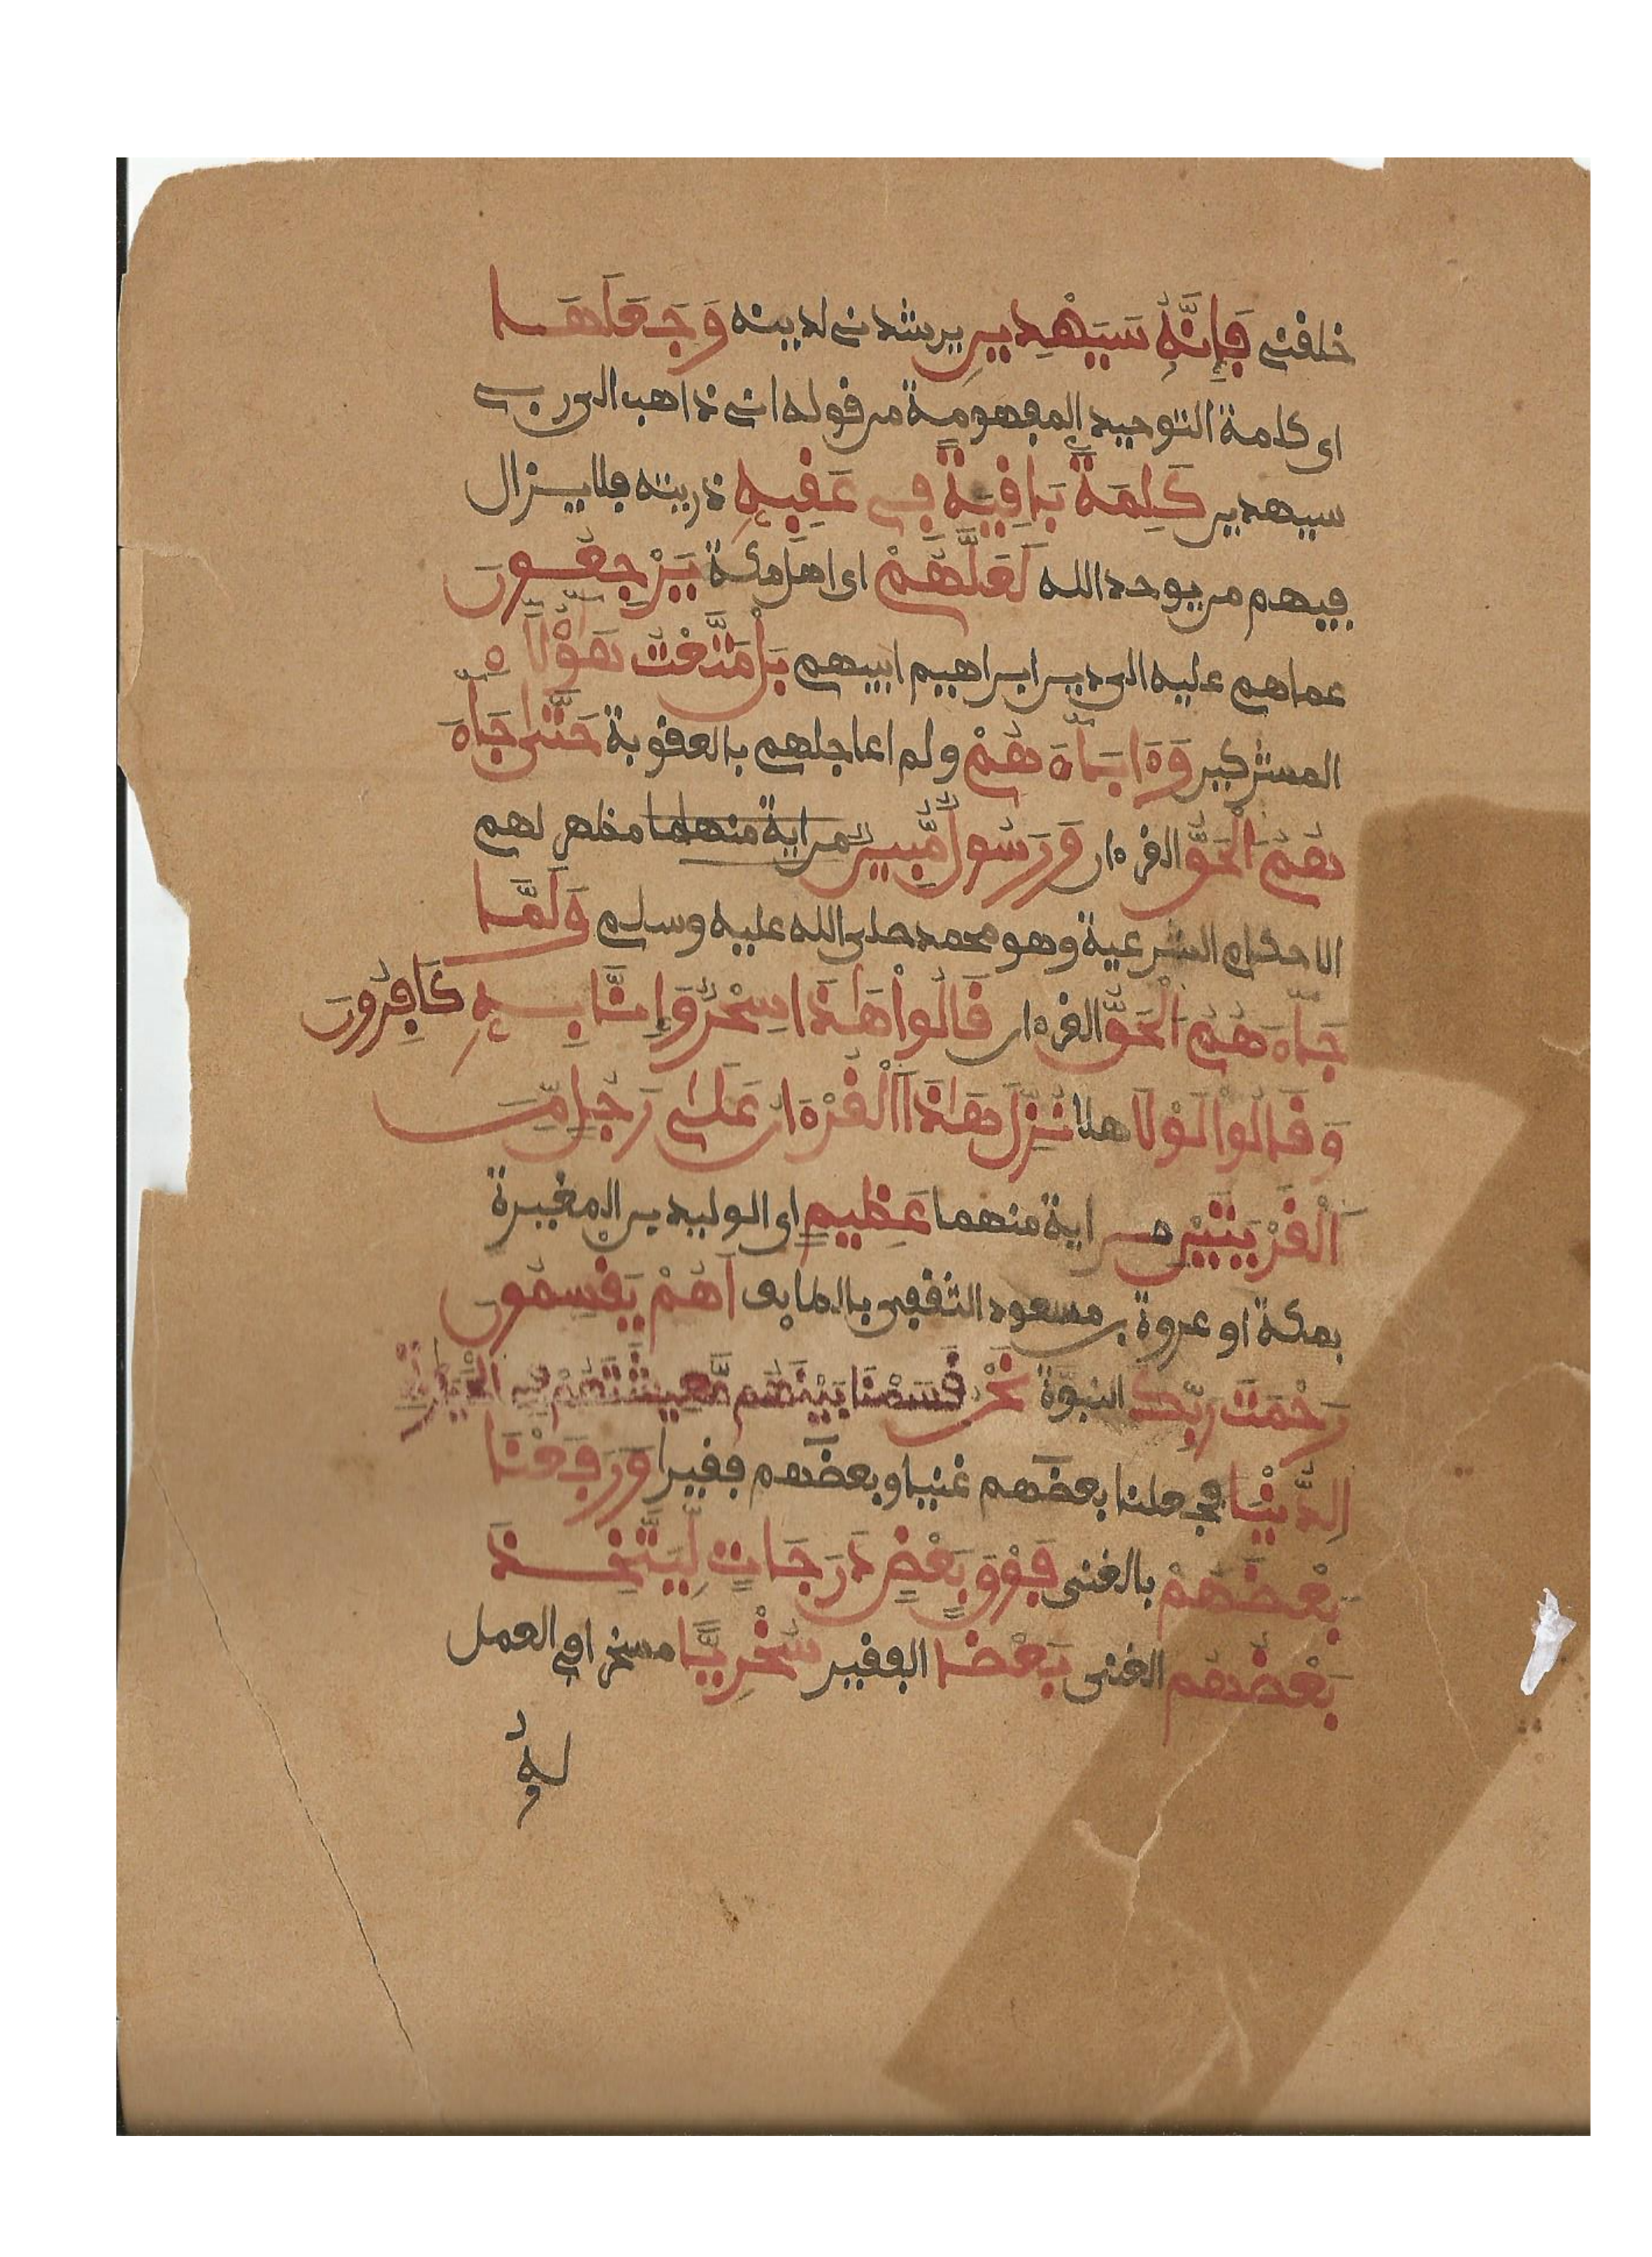 خلقني فَإِنَّهُۥ سَيَهْدِينِ يرشدني لدينه وَجَعَلَهَا
اي كلمة التوحيد المفهومة من قوله اني ذاهب الى ربي
سيهدين كَلِمَةً بَاقِيَةً فِي عَقِبِهِۦ ذريته فلا يزال
فيهم من يوحد الله لَعَلَّهُمْ اي اهل مكة يَرْجِعُونَ
عماهم عليه الى دين ابراهيم ابيهم بَلْ مَتَّعْتُ هَٰؤُلَاءِ
المشركين وَءَابَاءَهُمْ ولم اعاجلهم بالعقوبة حَتَّىٰ جَاءَ
هُمُ اَلْحَقُّ القرءان وَرَسُولٌ مُّبِينٌ من اية منهما مظهر لهم
الاحكام الشرعية وهو محمد صلى الله عليه وسلم وَلَمَّا
جَاءَهُمُ اَلْحَقُّ القرءان قَالُواْ هَٰذَا سِحْرٌ وَإِنَّا بِهِۦ كَافِرُونَ
وَقَالُواْ لَوْلَا هلا نُزِّلَ هَٰذَا اَلْقُرْءَانُ عَلَىٰ رَجُلٍ مِّنَ
اَلْقَرْيَتَيْنِ من اية منهما عَظِيمٍ اي الوليد بن المغيرة
بمكة او عروة بن مسعود الثقفي بالطايف أَهُمْ يَقْسِمُونَ
رَحْمَتَ رَبِّكَ النبوة نَحْنُ قَسَمْنَا بَيْنَهُم مَّعِيشَتَهُمْ فِي اَلْحَيَوٰةِ
اِلدُّنْيَا فجعلنا بعضهم غنيا وبعضهم فقيرا وَرَفَعْنَا
بَعْضَهُمْ بالغنى فَوْقَ بَعْضٍ دَرَجَاتٍ لِّيَتَّخِذَ
بَعْضُهُم الغني بَعْضًا الفقير سُخْرِيًّا مسخرا في العمل
له